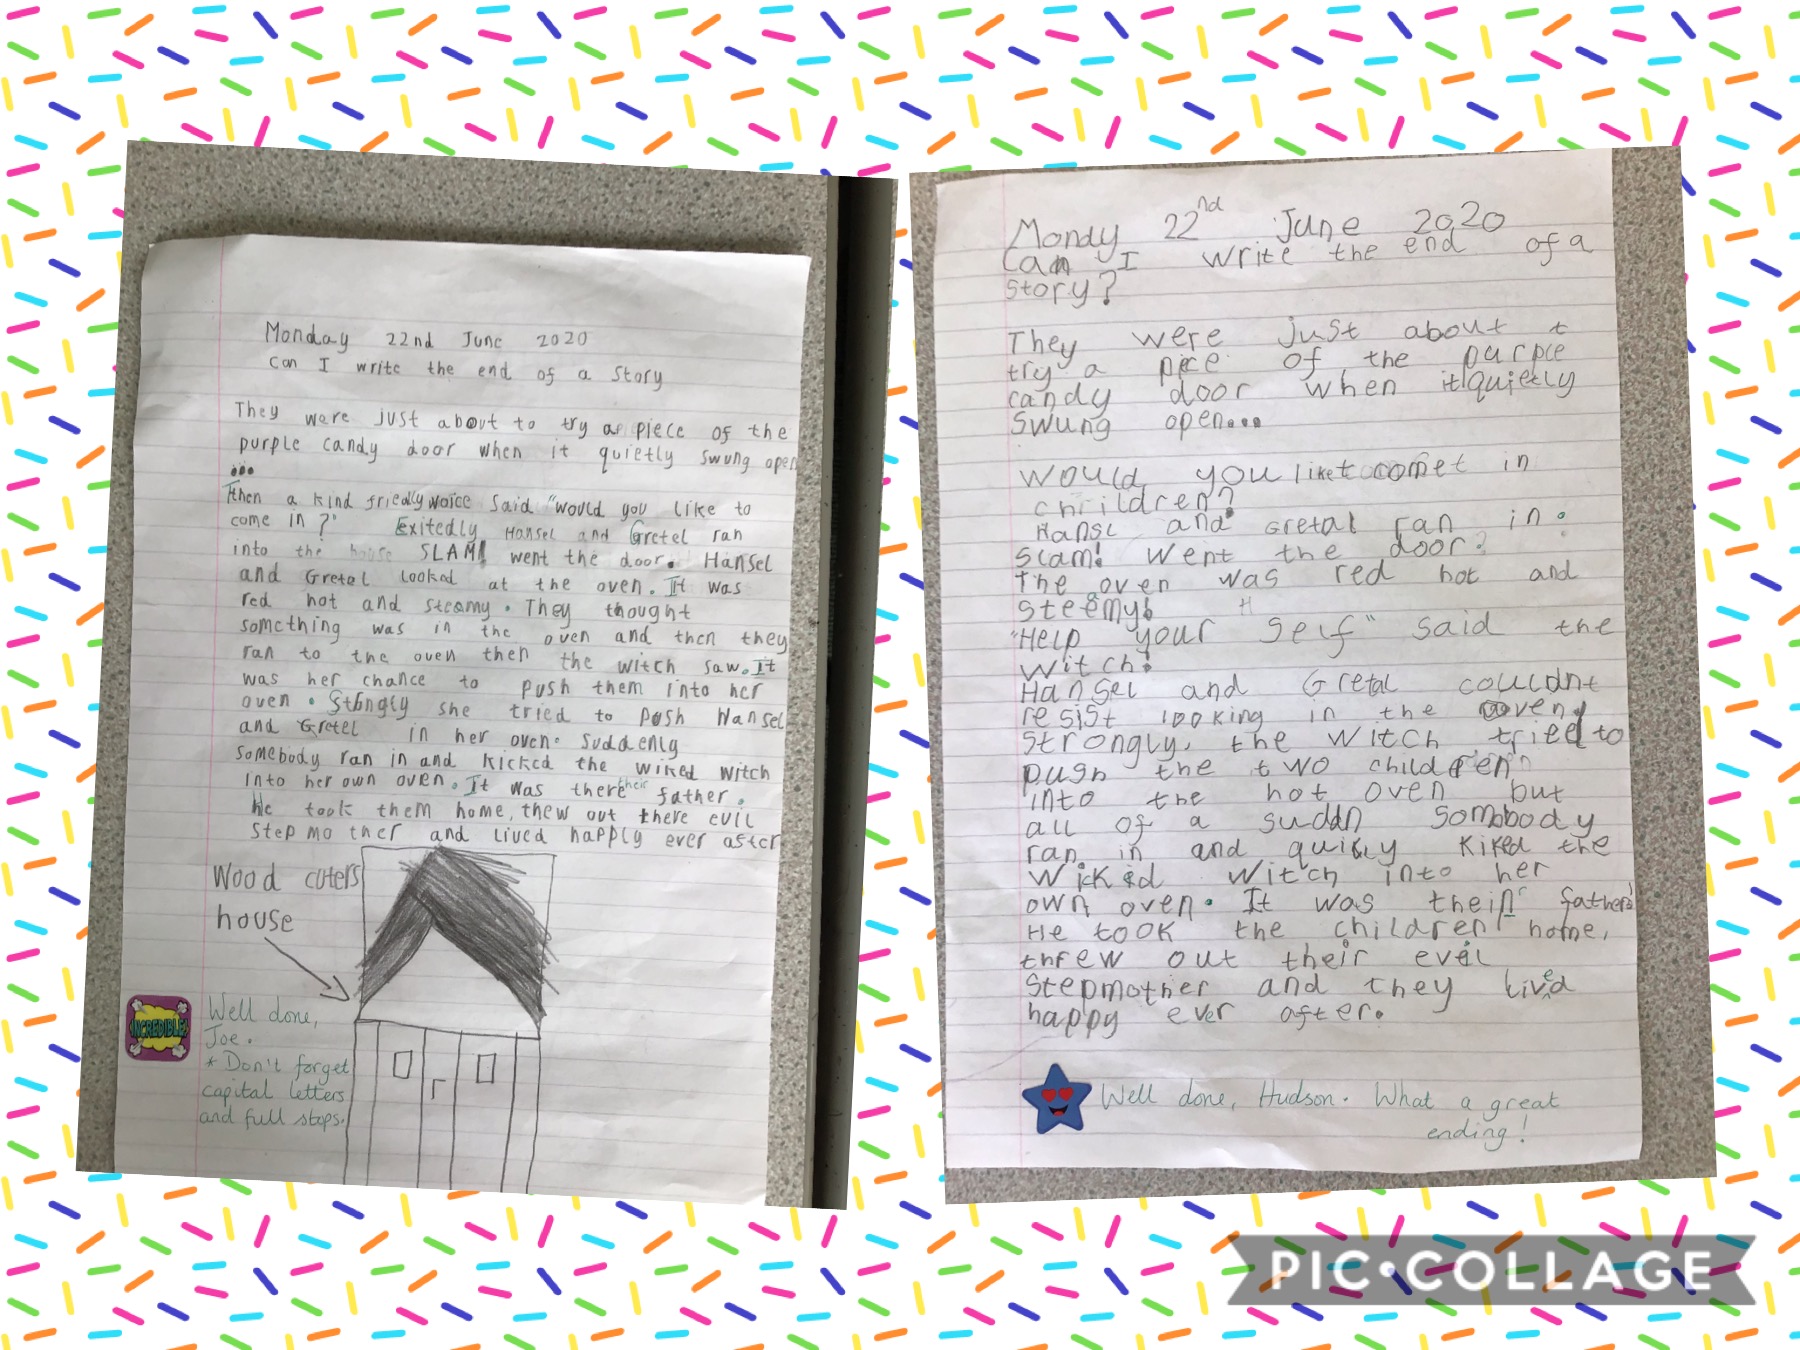 Monday 22nd June 2020
can I write the end of a Story
They were just about to try a piece of the
purple candy door when it quietly swung open
...
Then a kind friedly voice said "would you like to
come in?" Exitedly Hansel and Gretel ran
into the house SLAM! went the door. Hansel
and Gretel looked at the oven. It was
red hot and steamy. They thought
something was in the oven and then they
ran to the oven then the witch saw. It
was her chance to push them into her
oven. Stongly she tried to push Hansel
and Gretel in her oven. Suddenly
somebody ran in and kicked the wiked witch
into her own oven. It was there their father.
He took them home, thew out there evil
step mother and lived happly ever after
Wood cuters
house
INCREDIBLE!
Well done,
Joe.
* Don't forget
capital letters
and full stops.
Mondy 22nd June 2020
Can I write the end of a
story?
They were just about t
try a piece of the purple
candy door when it quietly
swung open...
Would you like t comet in
chrildren?
Hansl and Gretal ran in.
Slam! Went the door.
The oven was red hot and
steemy.
"Help your self" said the
witch.
Hansel and Gretal couldnt
resist looking in the oven
Strongly, the witch tried to
push the two children
into the hot oven but
all of a suddn somobody
ran in and quikly kiked the
wicked witch into her
own oven. It was their father.
He took the children home,
threw out their evil
stepmother and they lived
happy ever after.
Well done, Hudson. What a great
ending!
PIC•COLLAGE